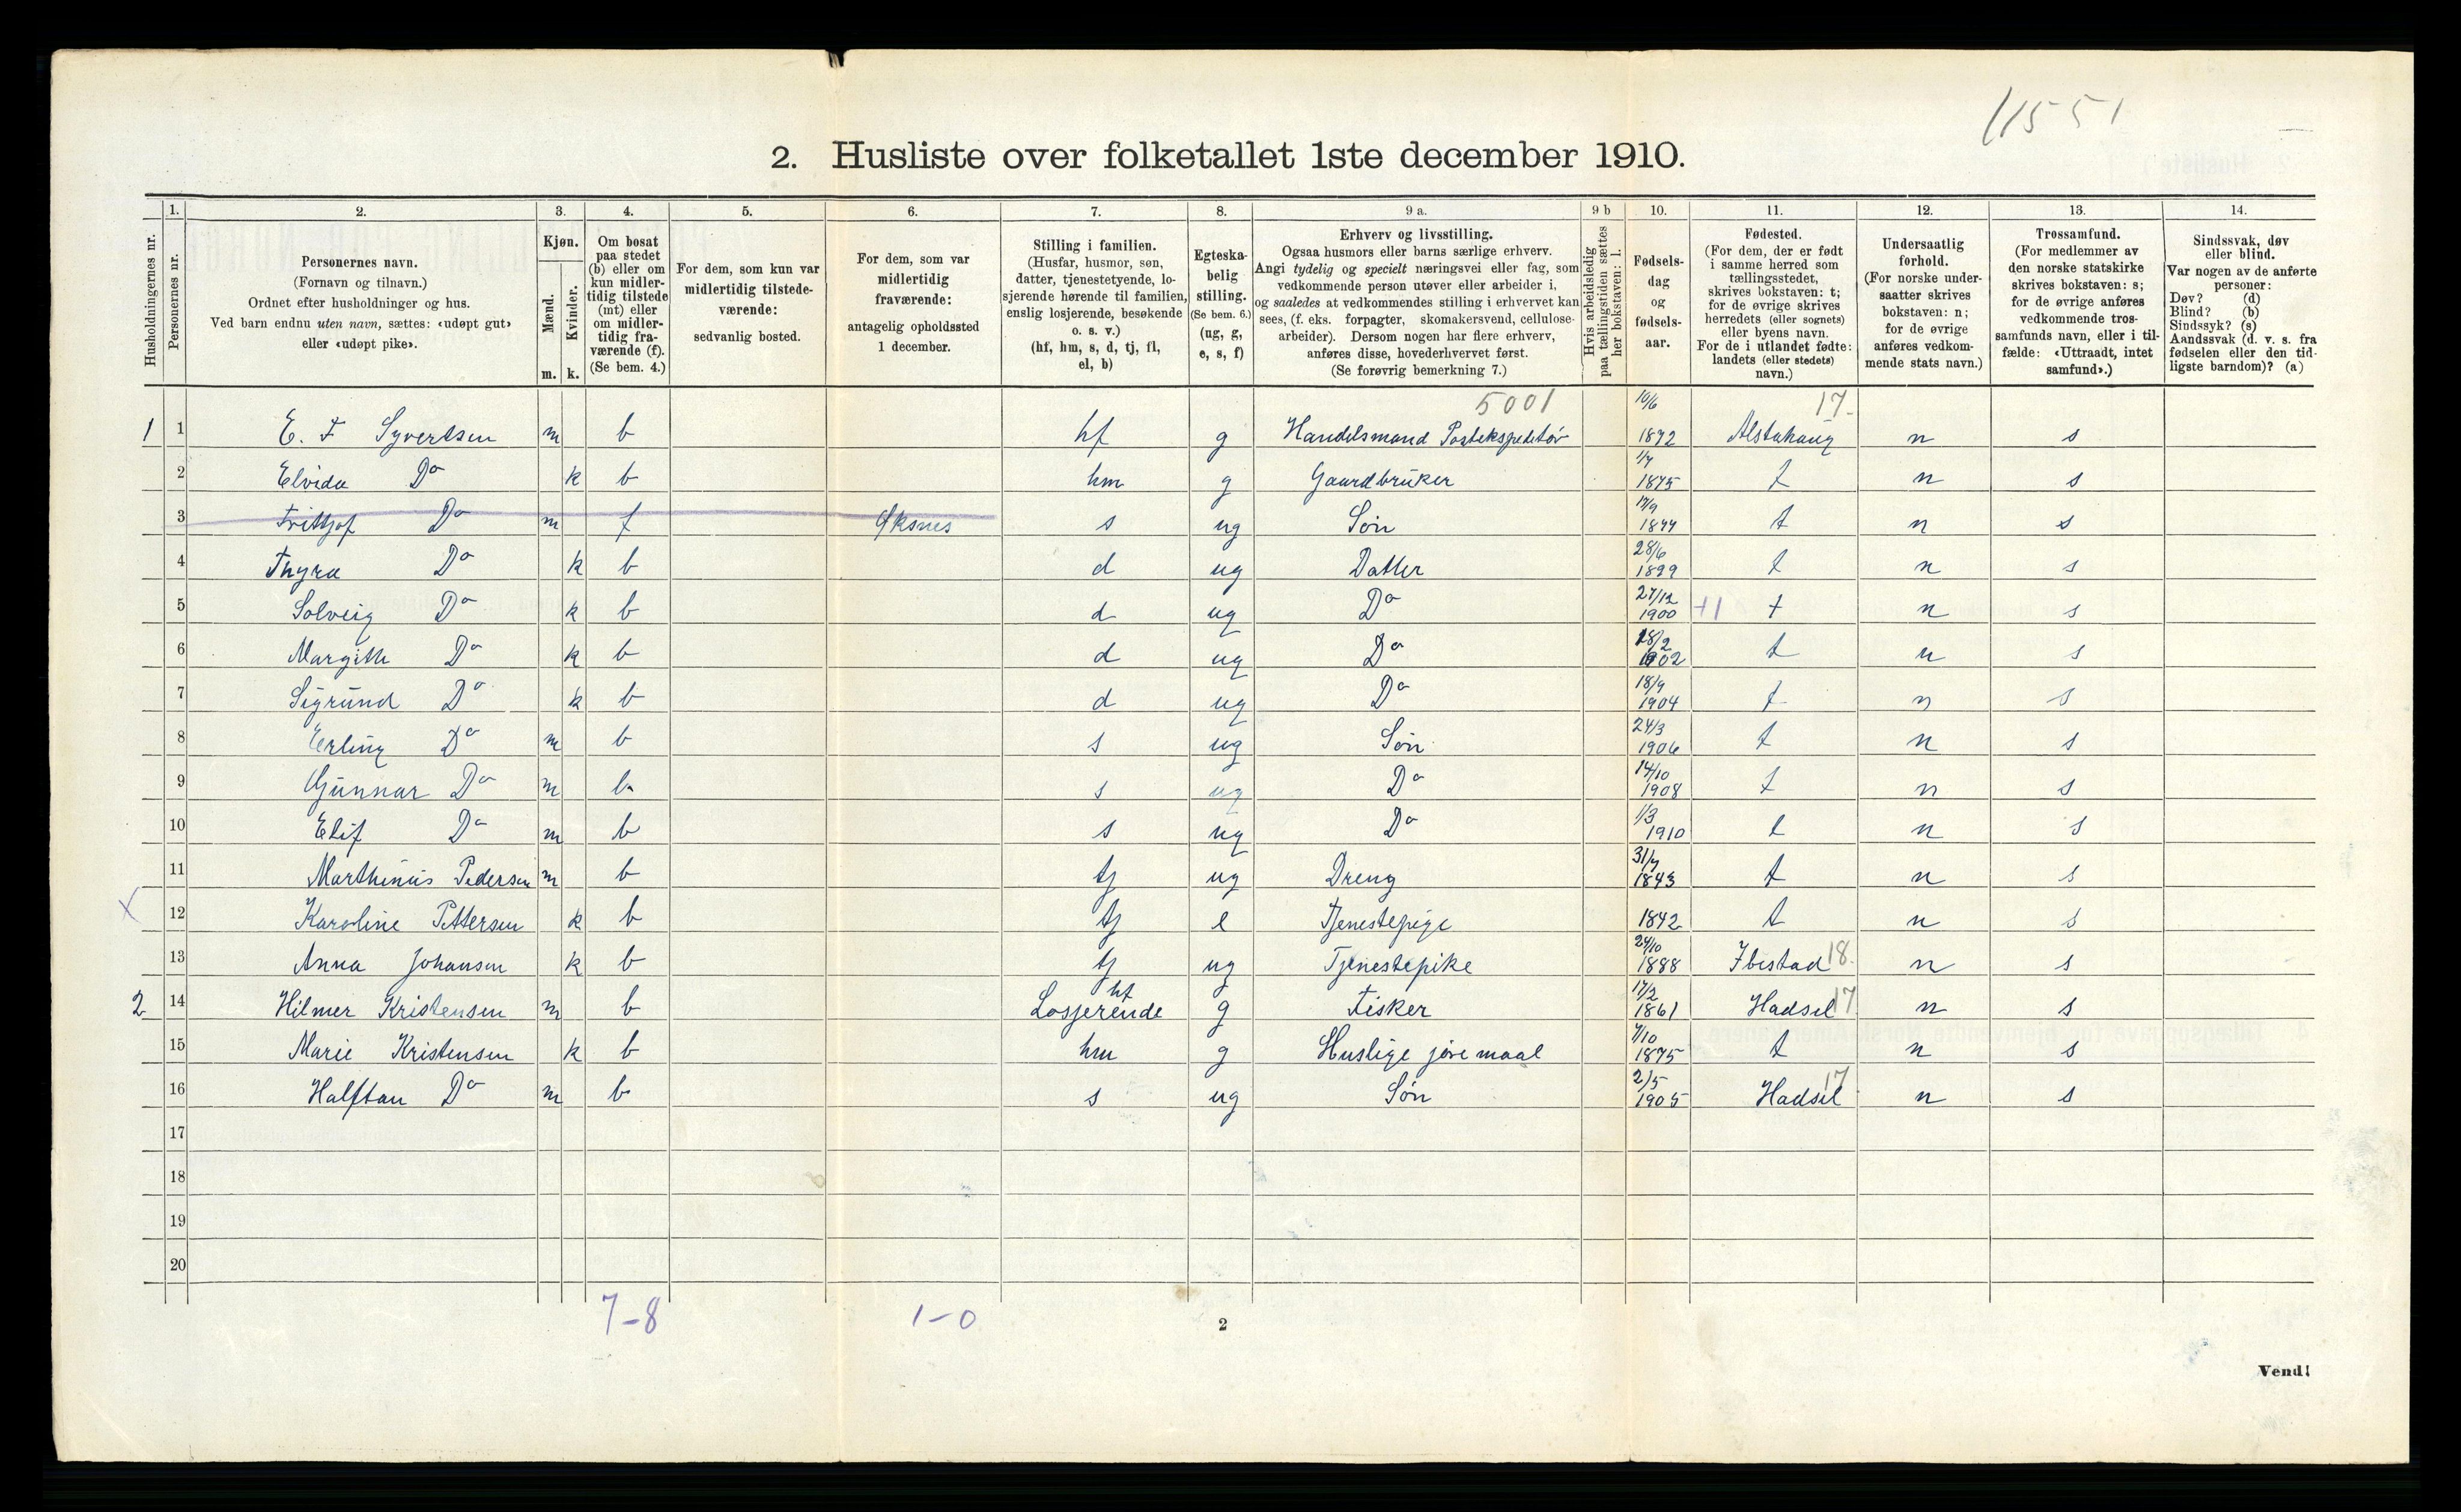 11551
2. Husliste over folketallet 1ste december 1910.
Husholdningernes nr.
1. Personernes nr.
2. Personernes navn.
(Fornavn og tilnavn.)
Ordnet efter husholdninger og hus.
Ved barn endnu uten navn, sættes: «udøpt gut»
eller «udøpt pike».
3. Kjøn.
Mænd. m.
Kvinder. k.
4. Om bosat
paa stedet
(b) eller om
kun midler-
tidig tilstede
(mt) eller
om midler-
tidig fra-
værende (f).
(Se bem. 4.)
5. For dem, som kun var
midlertidig tilstede-
værende:
sedvanlig bosted.
6. For dem, som var
midlertidig
fraværende:
antagelig opholdssted
1 december.
7. Stilling i familien.
(Husfar, husmor, søn,
datter, tjenestetyende, lo-
sjerende hørende til familien,
enslig losjerende, besøkende
o. s. v.)
(hf, hm, s, d, tj, fl,
el, b)
8. Egteska-
belig
stilling.
(Se bem. 6.)
(ug, g,
e, s, f)
9 a. Erhverv og livsstilling.
Ogsaa husmors eller barns særlige erhverv.
Angi tydelig og specielt næringsvei eller fag, som
vedkommende person utøver eller arbeider i,
og saaledes at vedkommendes stilling i erhvervet kan
sees, (f. eks. forpagter, skomakersvend, cellulose-
arbeider). Dersom nogen har flere erhverv,
anføres disse, hovederhvervet først.
(Se forøvrig bemerkning 7.)
9 b Hvis arbeidsledig
paa tællingstiden sættes
her bokstaven: l.
10. Fødsels-
dag
og
fødsels-
aar.
11. Fødested.
(For dem, der er født
i samme herred som
tællingsstedet,
skrives bokstaven: t;
for de øvrige skrives
herredets (eller sognets)
eller byens navn.
For de i utlandet fødte:
landets (eller stedets)
navn.)
12. Undersaatlig
forhold.
(For norske under-
saatter skrives
bokstaven: n;
for de øvrige
anføres vedkom-
mende stats navn.)
13. Trossamfund.
(For medlemmer av
den norske statskirke
skrives bokstaven: s;
for de øvrige anføres
vedkommende tros-
samfunds navn, eller i til-
fælde: «Uttraadt, intet
samfund».)
14. Sindssvak, døv
eller blind.
Var nogen av de anførte
personer:
Døv? (d)
Blind? (b)
Sindssyk? (s)
Aandssvak (d. v. s. fra
fødselen eller den tid-
ligste barndom)? (a)
5001 17.
1 1 E. F Syvertsen m b hf g Handelsmand Postekspeditør 10/6 1872 Alstahaug n s
2 Elvida Do k b hm g Gaardbruker 1875 t n s
3 Frithjof Do m f Øksnes s ug Søn 17/9 t n s
4 Thyra Do k b d ug Datter 28/6 1899 t n s
5 Solveig Do k b d ug Do 27/12 1900 t n s
6 Margith Do k b d ug Do 18/2 1902 t n s
7 Sigrund Do k b d ug Do 18/9 1904 t n s
8 Erling Do m b s ug Søn 24/3 1906 t n s
9 Gunnar Do m b s ug Do 14/10 1908 t n s
10 Elif Do m b s ug Do 1/3 1910 t n s
11 Marthinus Pedersen m b tj ug Dreng 31/7 1843 t n s
X 12 Karoline Pettersen k b tj e Tjenestepige 1842 t n s
13 Anna Johansen k b tj ug Tjenestepike 24/10 1888 Ibestad 18. n s
2 14 Hilmer Kristensen m b Losjerende hf g Fisker 17/2 1861 Hadsel 17 n s
15 Marie Kristensen k b hm g Huslige jøremaal 7/10 1875 t n s
16 Halftan Do m b s ug Søn 2/5 1905 Hadsel 17 n s
17
18
19
20
7-8 1-0
2
Vend!